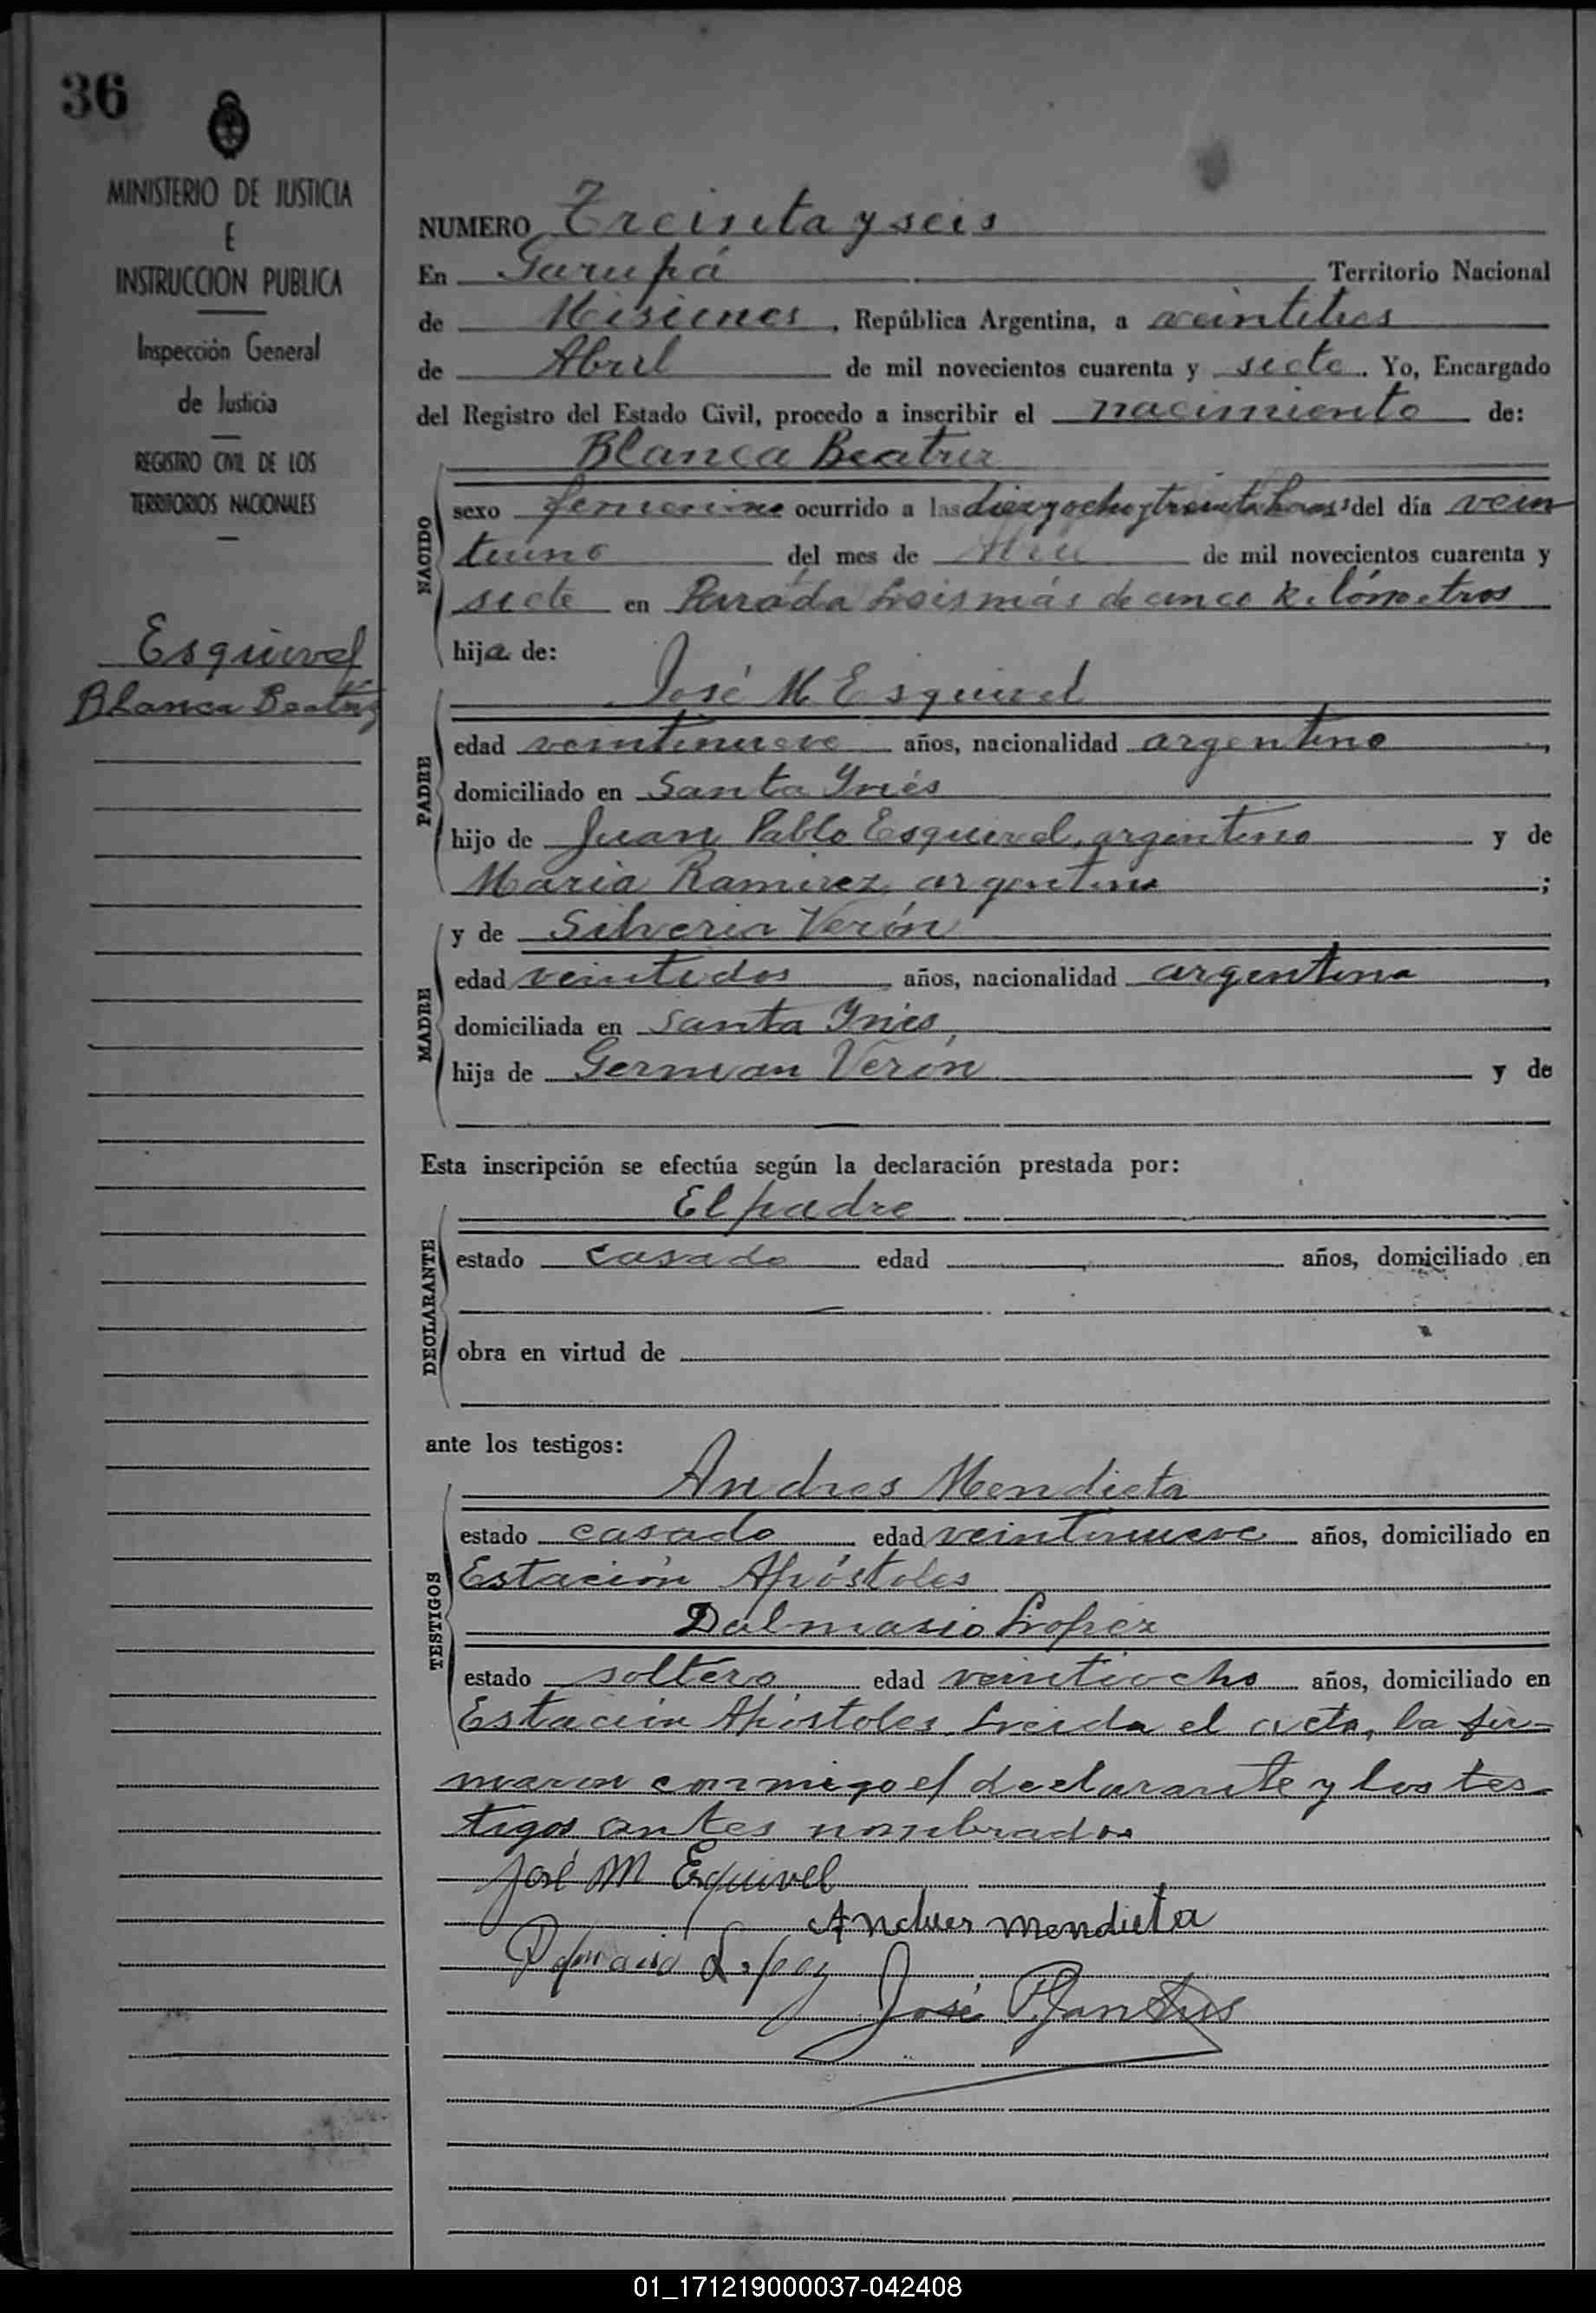 36
MINISTERIO DE JUSTICIA
E
INSTRUCCION PUBLICA
Inspección General
de Justicia
REGISTRO CIVIL DE LOS
TERRITORIOS NACIONALES
Esquivel
Blanca Beatriz
NUMERO Treinta y seis
En Garupá Territorio Nacional
de Misiones, República Argentina, a veintitres
de Abril de mil novecientos cuarenta y siete. Yo, Encargado
del Registro del Estado Civil, procedo a inscribir el nacimiento de:
Blanca Beatriz
NACIDO
sexo femenino ocurrido a las diez y ocho y treinta horas del día vein
tiuno del mes de Abril de mil novecientos cuarenta y
siete en Parada Leis más de cinco kilómetros
hija de:
José M Esquivel
PADRE
edad veintinueve años, nacionalidad argentino,
domiciliado en Santa Ynés
hijo de Juan Pablo Esquivel, argentino y de
Maria Ramirez argentina;
y de Silveria Verón
MADRE
edad veintidos años, nacionalidad argentina,
domiciliada en Santa Ynés,
hija de German Verón y de
Esta inscripción se efectúa según la declaración prestada por:
El padre
DECLARANTE
estado casado edad años, domiciliado en
obra en virtud de
ante los testigos:
Andres Mendieta
TESTIGOS
estado casado edad veintinueve años, domiciliado en
Estación Apóstoles
Dalmasio Lopez
estado soltero edad veintiocho años, domiciliado en
Estación Apóstoles. Leida el acta, la fir-
maron conmigo el declarante y los tes-
tigos antes nombrados
José M Esquivel
Andres Mendieta
Lopez
José
01_171219000037-042408